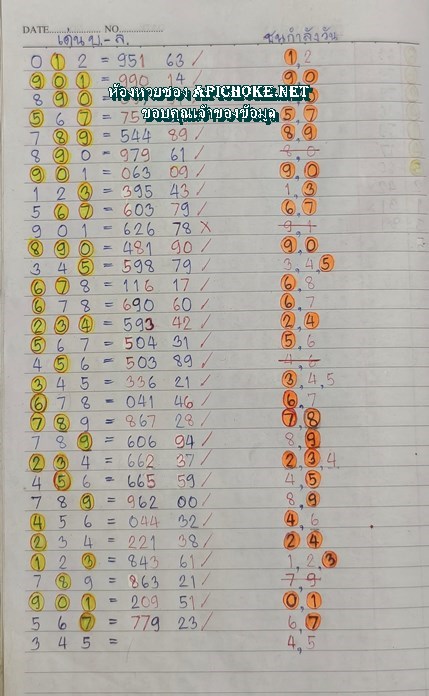 DATE NO.
เดิน บ.-ล. ชนกำลังวัน
0 1 2 = 951 63 / 1,2
9 0 1 = 990 14 / 9 0
ห้องหวยซอง APICHOKE.NET
8 9 0
5 6 7 = 75 5 7
ขอบคุณเจ้าของข้อมูล
7 8 9 = 544 89 / 8,9
8 9 0 = 979 61 / 8,0
9 0 1 = 063 09 / 9,0
1 2 3 = 395 43 / 1,3
5 6 7 = 603 79 / 6,7
9 0 1 = 626 78 x 9,1
8 9 0 = 481 90 / 9,0
3 4 5 = 598 79 / 3,4,5
6 7 8 = 116 17 / 6,8
6 7 8 = 690 60 / 6,7
2 3 4 = 593 42 / 2,4
5 6 7 = 504 31 / 5,6
4 5 6 = 503 89 / 4,6
3 4 5 = 336 21 / 3,4,5
6 7 8 = 041 46 / 6,7
7 8 9 = 867 28 / 7,8
7 8 9 = 606 94 / 8,9
2 3 4 = 662 37 / 2,3,4
4 5 6 = 665 59 / 4,5
7 8 9 = 962 00 / 8,9
4 5 6 = 044 32 / 4,6
2 3 4 = 221 38 / 2 4
1 2 3 = 843 61 / 1,2,3
7 8 9 = 863 21 / 7,9
9 0 1 = 209 51 / 0,1
5 6 7 = 779 23 / 6,7
3 4 5 = 4,5